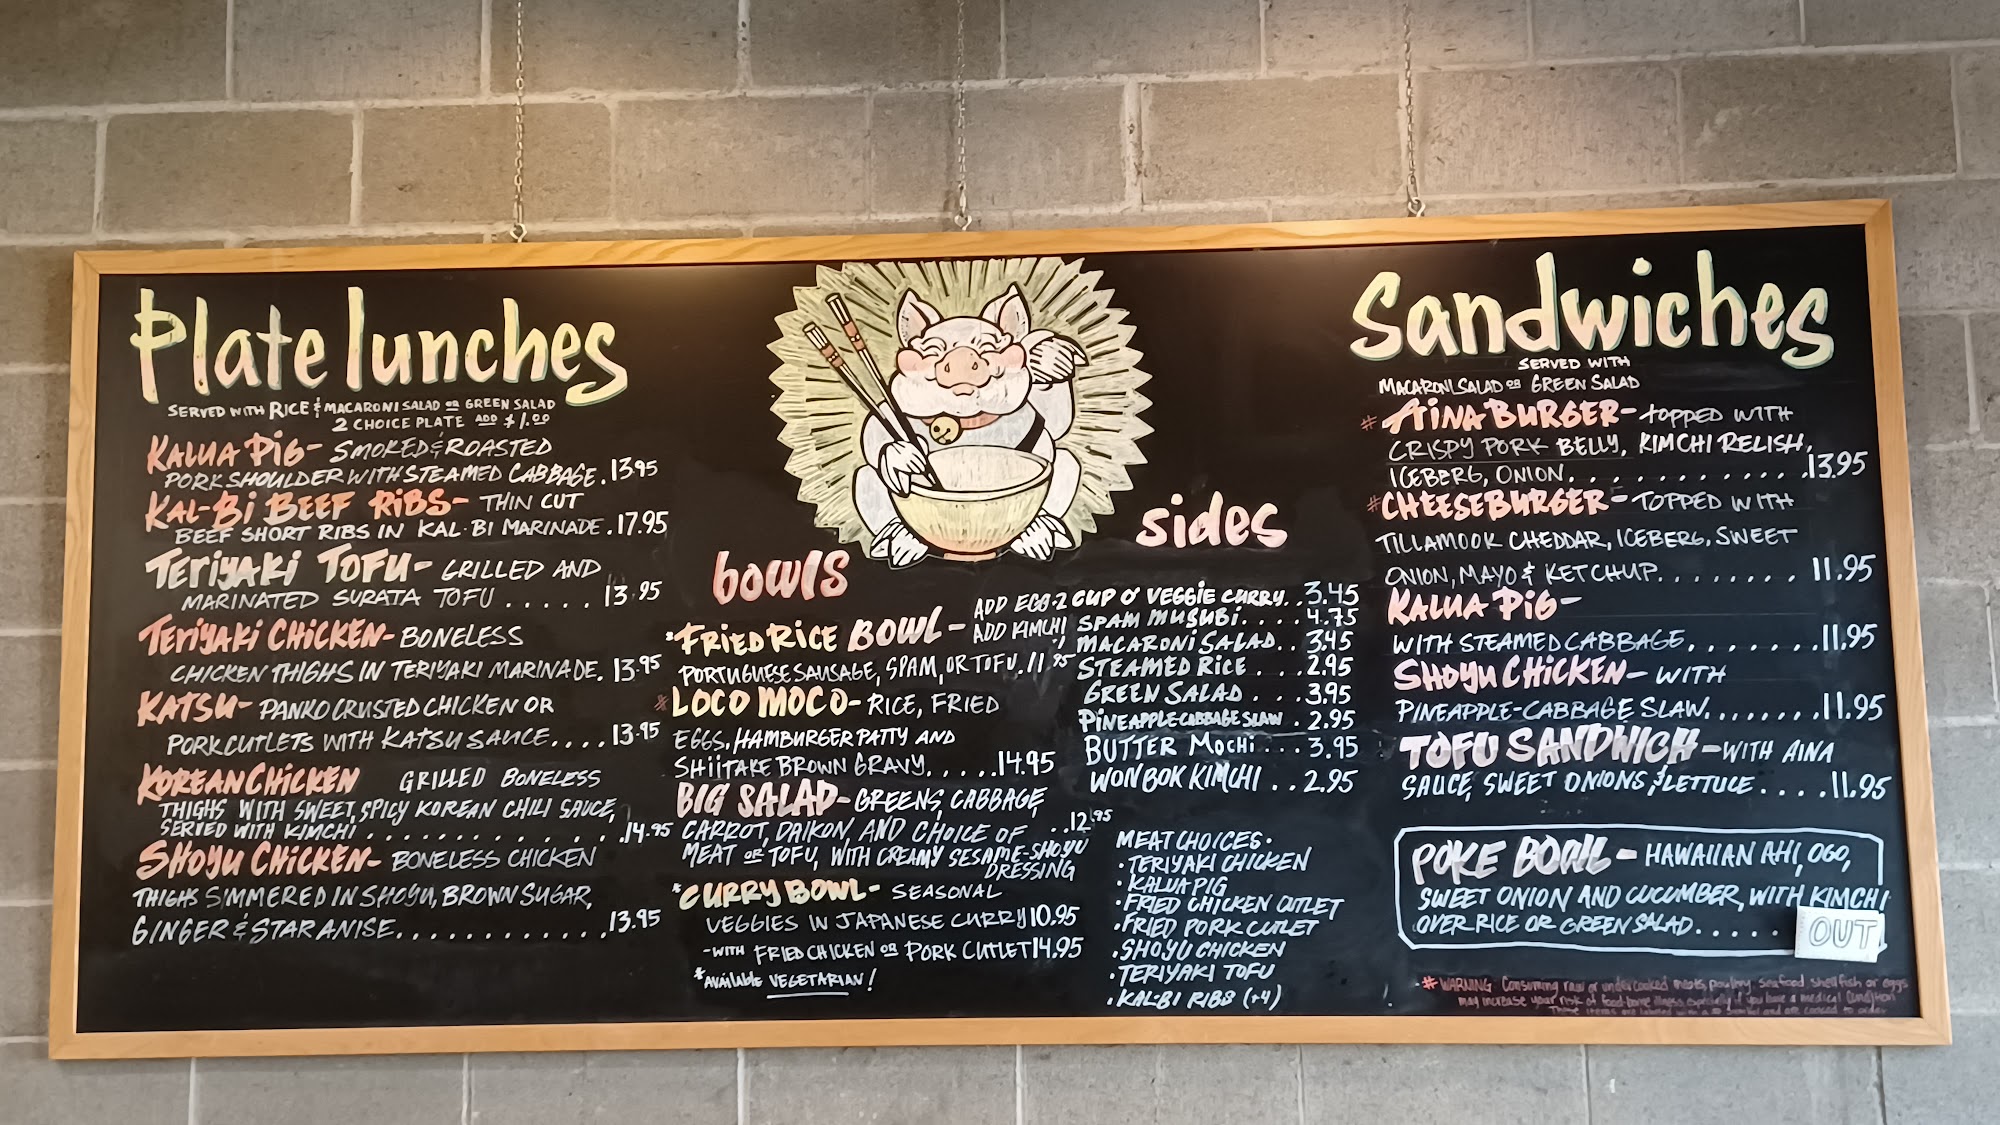 Plate lunches
SERVED WITH RICE & MACARONI SALAD OR GREEN SALAD
2 CHOICE PLATE ADD $1.00
KALUA PIG- SMOKED & ROASTED
PORK SHOULDER WITH STEAMED CABBAGE. 13.95
KAL-BI BEEF RIBS- THIN CUT
BEEF SHORT RIBS IN KAL-BI MARINADE. 17.95
TERIYAKI TOFU- GRILLED AND
MARINATED SURATA TOFU ..... 13.95
TERIYAKI CHICKEN- BONELESS
CHICKEN THIGHS IN TERIYAKI MARINADE. 13.95
KATSU- PANKO CRUSTED CHICKEN OR
PORK CUTLETS WITH KATSU SAUCE.... 13.95
KOREAN CHICKEN GRILLED BONELESS
THIGHS WITH SWEET, SPICY KOREAN CHILI SAUCE,
SERVED WITH KIMCHI ............ 14.95
SHOYU CHICKEN- BONELESS CHICKEN
THIGHS SIMMERED IN SHOYU, BROWN SUGAR,
GINGER & STAR ANISE............ 13.95
bowls
*FRIED RICE BOWL- ADD EGG-2
ADD KIMCHI-1
PORTUGUESE SAUSAGE, SPAM, OR TOFU. 11.95
#LOCO MOCO- RICE, FRIED
EGGS, HAMBURGER PATTY AND
SHIITAKE BROWN GRAVY..... 14.95
BIG SALAD- GREENS, CABBAGE,
CARROT, DAIKON, AND CHOICE OF ..12.95
MEAT OR TOFU, WITH CREAMY SESAME-SHOYU
DRESSING
*CURRY BOWL- SEASONAL
VEGGIES IN JAPANESE CURRY 10.95
-WITH FRIED CHICKEN OR PORK CUTLET 14.95
*AVAILABLE VEGETARIAN!
sides
CUP O' VEGGIE CURRY.. 3.45
SPAM MUSUBI.... 4.75
MACARONI SALAD.. 3.45
STEAMED RICE ... 2.95
GREEN SALAD ... 3.95
PINEAPPLE-CABBAGE SLAW . 2.95
BUTTER MOCHI ... 3.95
WON BOK KIMCHI .. 2.95
MEAT CHOICES.
• TERIYAKI CHICKEN
• KALUA PIG
• FRIED CHICKEN CUTLET
• FRIED PORK CUTLET
• SHOYU CHICKEN
• TERIYAKI TOFU
• KAL-BI RIBS (+4)
Sandwiches
SERVED WITH
MACARONI SALAD OR GREEN SALAD
#AINA BURGER- TOPPED WITH
CRISPY PORK BELLY, KIMCHI RELISH,
ICEBERG, ONION............ 13.95
#CHEESEBURGER- TOPPED WITH
TILLAMOOK CHEDDAR, ICEBERG, SWEET
ONION, MAYO & KETCHUP........ 11.95
KALUA PIG-
WITH STEAMED CABBAGE....... 11.95
SHOYU CHICKEN- WITH
PINEAPPLE-CABBAGE SLAW....... 11.95
TOFU SANDWICH- WITH AINA
SAUCE, SWEET ONIONS, & LETTUCE .... 11.95
POKE BOWL- HAWAIIAN AHI, OGO,
SWEET ONION AND CUCUMBER, WITH KIMCHI
OVER RICE OR GREEN SALAD..... OUT
# WARNING Consuming raw or undercooked meats, poultry, seafood, shellfish or eggs
may increase your risk of food-borne illness especially if you have a medical condition
These items are labeled with a # symbol and are cooked to order